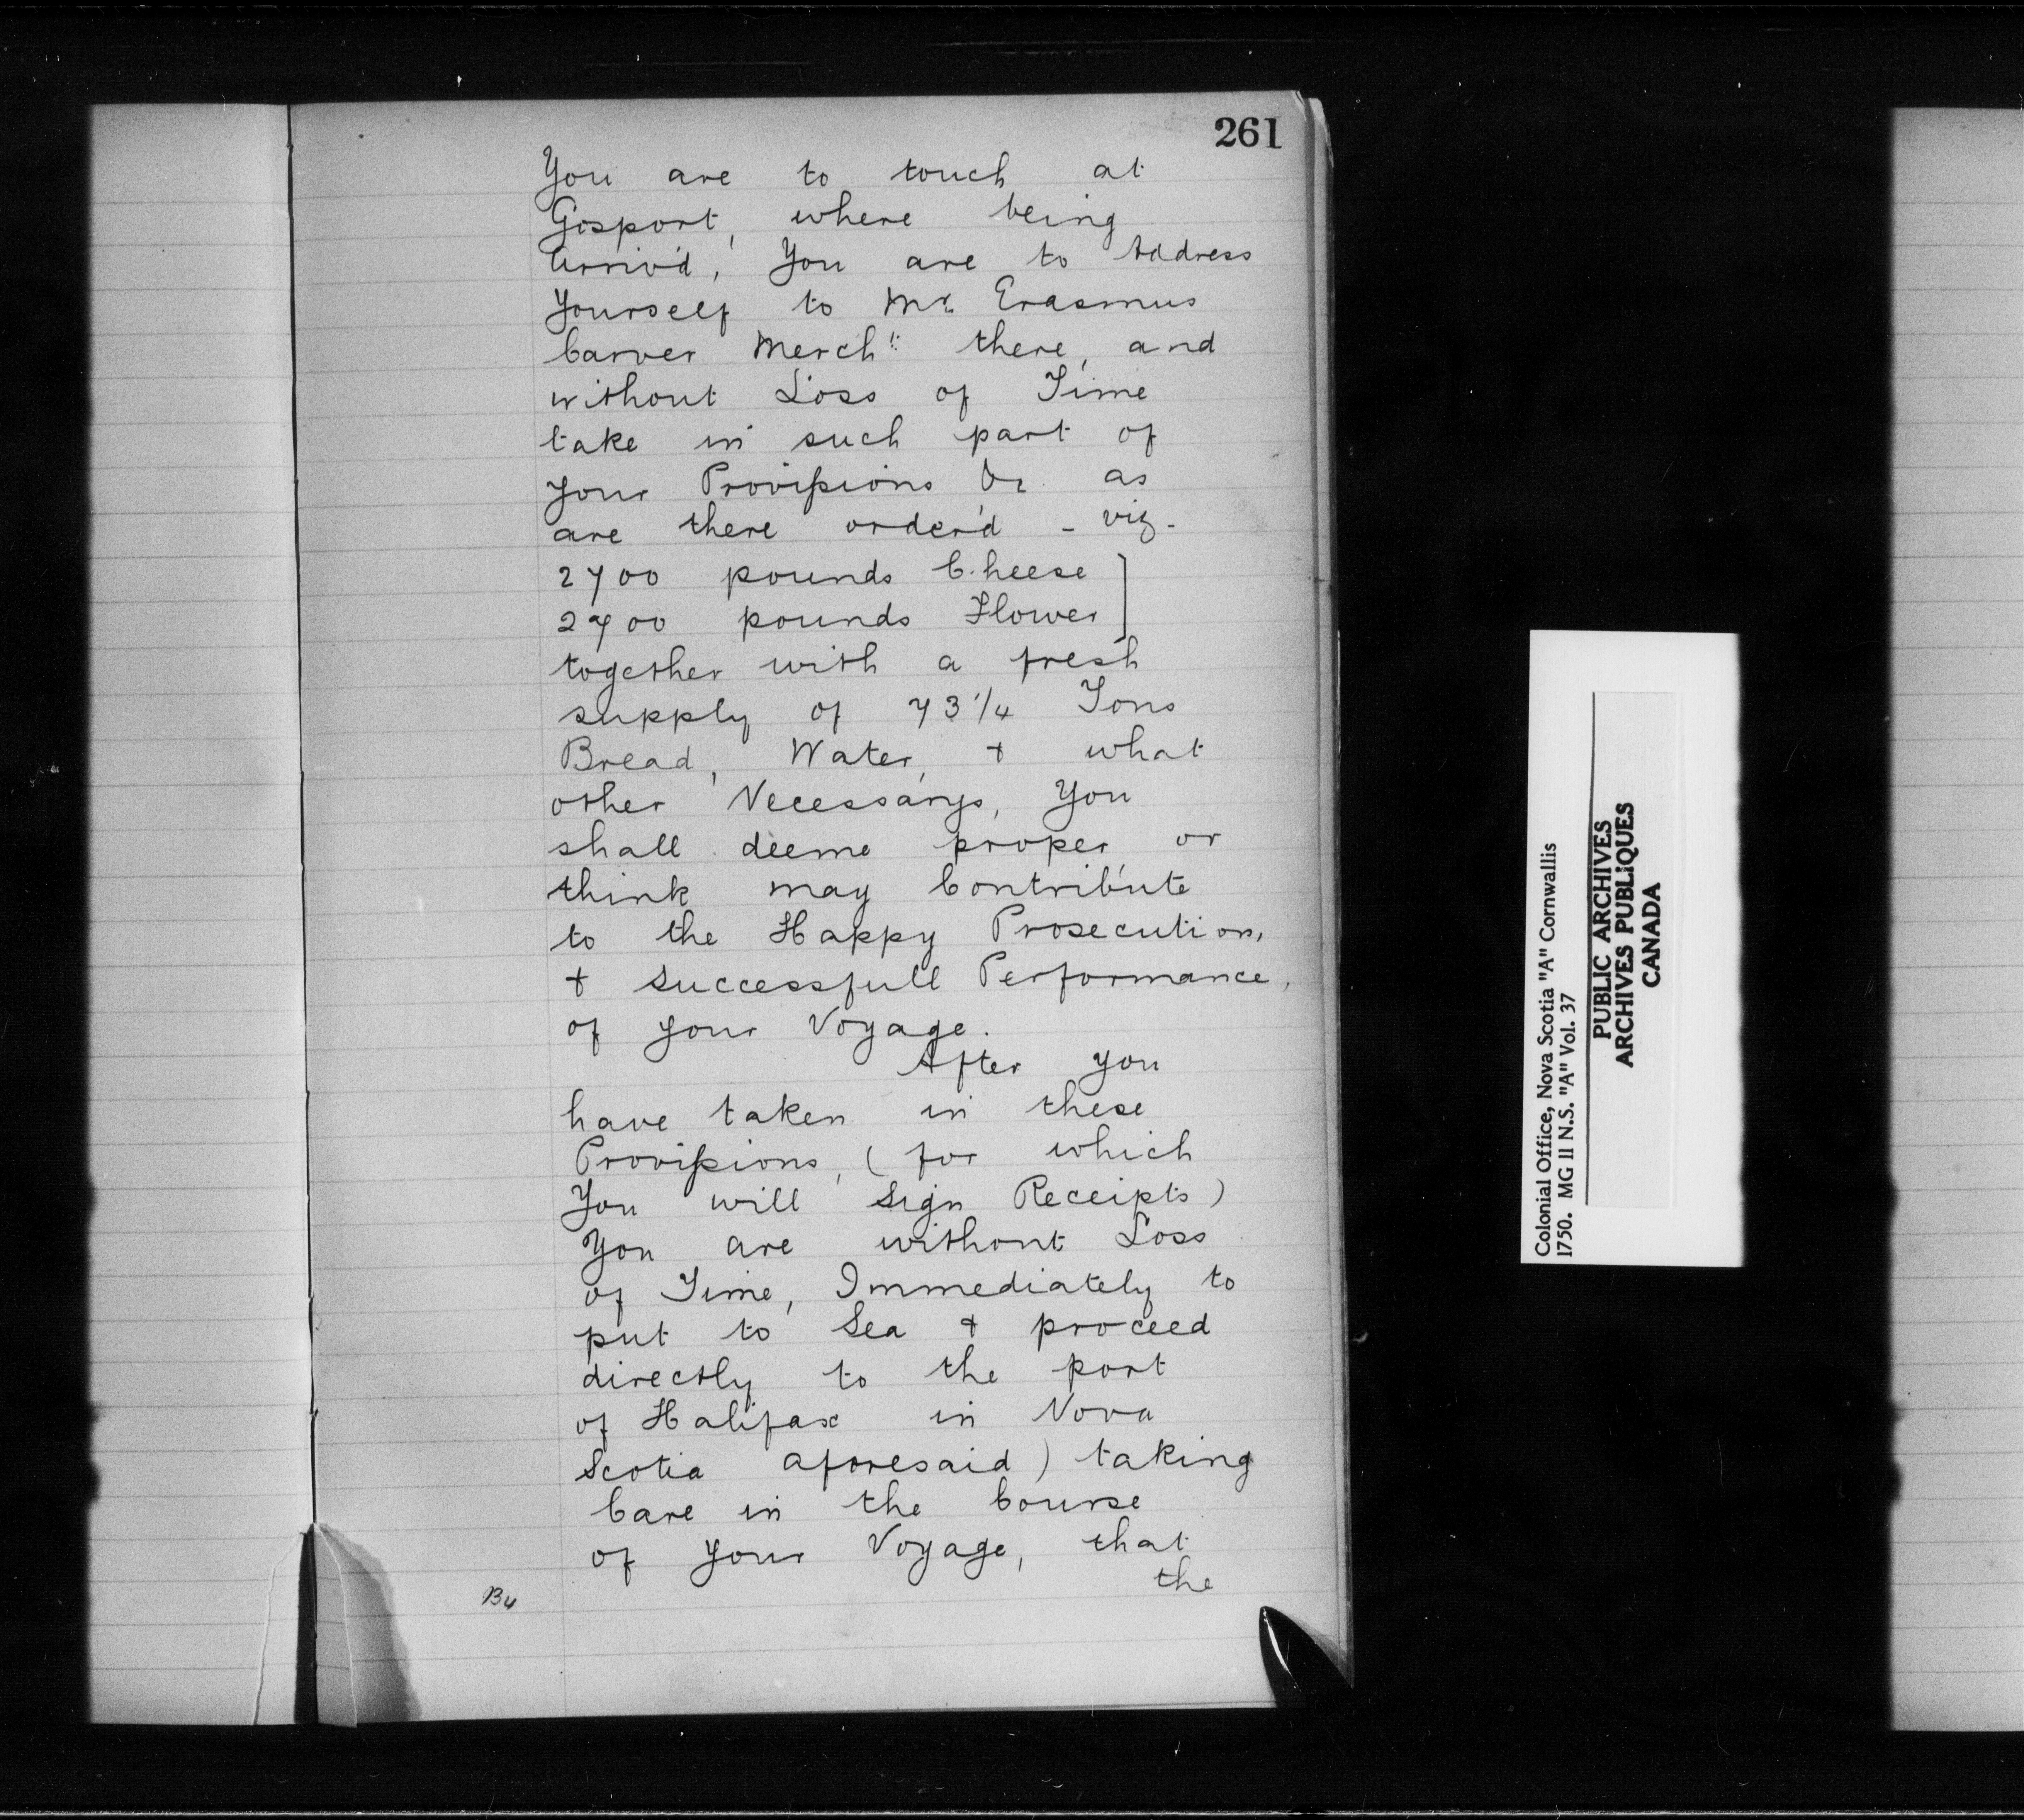 261
You are to touch at
Gosport, where being
Arriv'd, You are to Address
Yourself to Mr. Erasmus
Carver Merch.t there, and
without Loss of Time
take in such part of
your Provisions &c. as
are there order'd - viz -
2700 pounds Cheese ]
2700 pounds Flower ]
together with a fresh
supply of 73 1/4 Tons
Bread, Water, & what
other Necessarys, You
shall deeme proper, or
think may Contribute
to the Happy Prosecution,
& successfull Performance,
of your Voyage.
After you
have taken in these
Provisions, (for which
You will Sign Receipts)
You are without Loss
of Time, Immediately to
put to Sea & proceed
directly to the port
of Halifax in Nova
Scotia aforesaid) taking
Care in the Course
of your Voyage, that
the
B4
Colonial Office, Nova Scotia "A" Cornwallis
1750. MG 11 N.S. "A" Vol. 37
PUBLIC ARCHIVES
ARCHIVES PUBLIQUES
CANADA